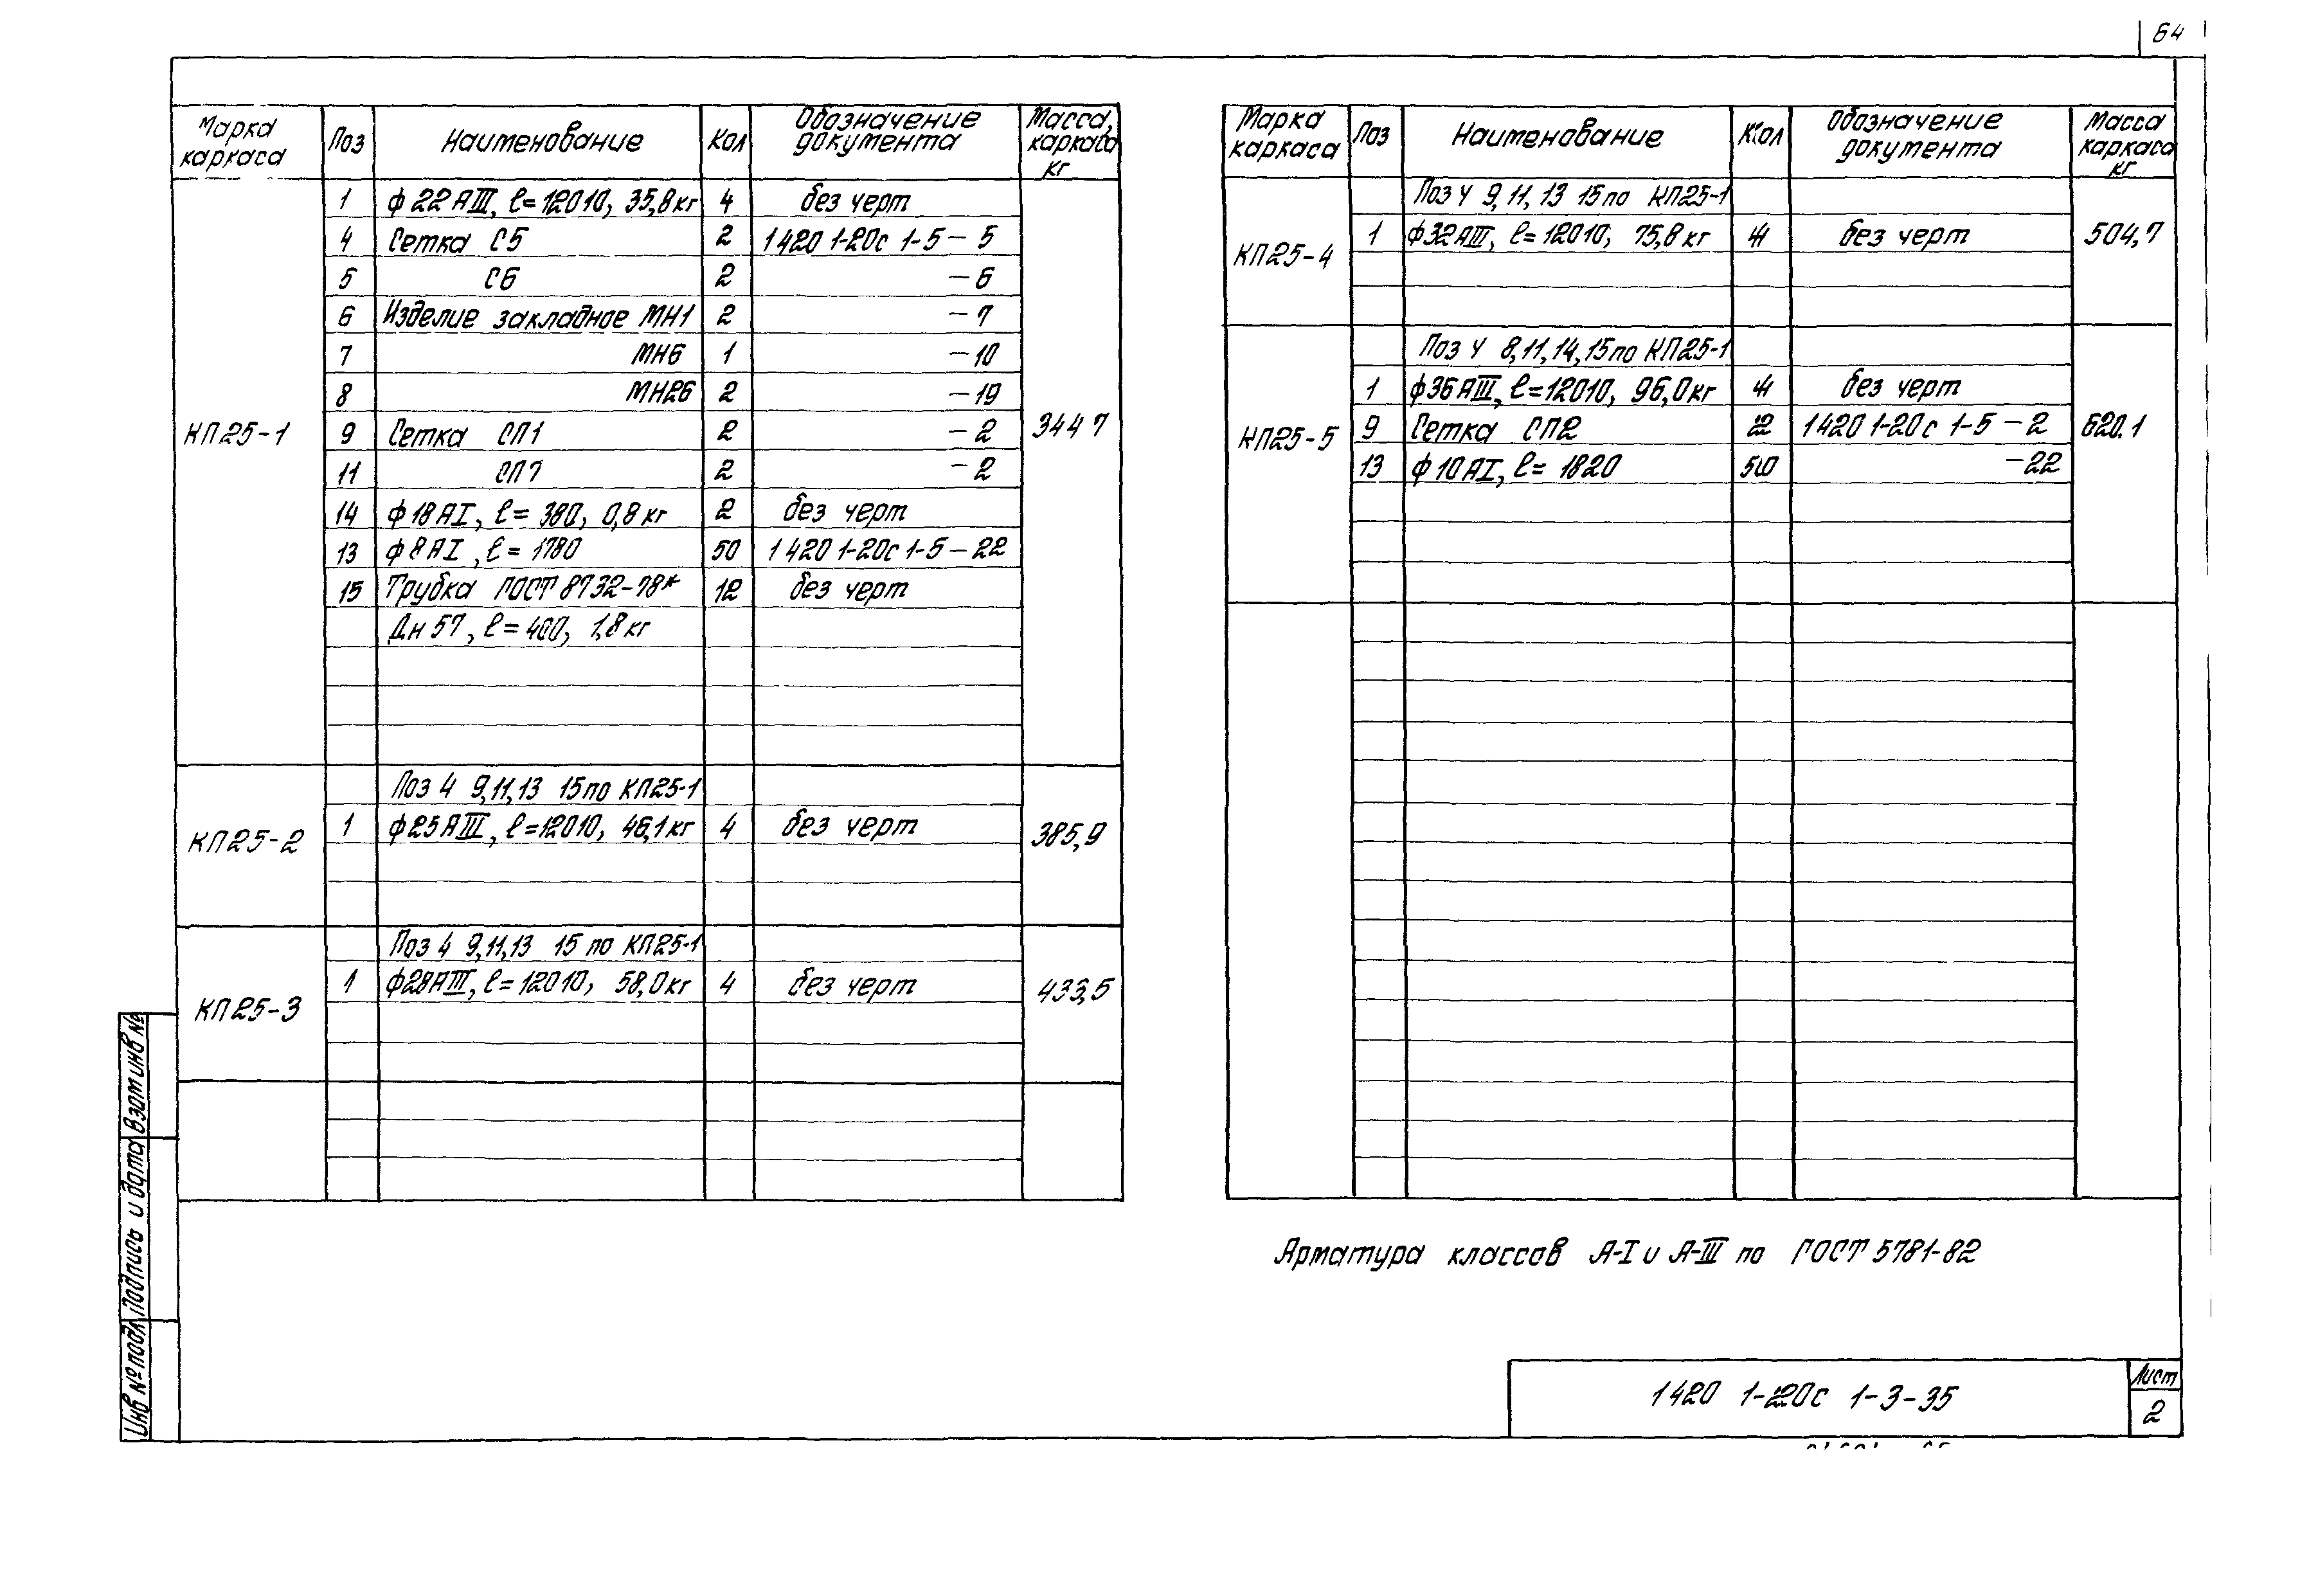 64
Марка каркаса Поз Наименование Кол Обозначение документа Масса, каркаса кг
КП25-1
1 ф22АIII, ℓ=12010, 35,8кг 4 без черт
4 Сетка С5 2 1420 1-20с 1-5-5
5 С6 2 -6
6 Изделие закладное МН1 2 -7
7 МН6 1 -10
8 МН26 2 -19
9 Сетка СП1 2 -2
11 СП7 2 -2
14 ф18АI, ℓ=380, 0,8кг 2 без черт
13 ф8АI, ℓ=1780 50 1420 1-20с 1-5-22
15 Трубка ГОСТ 8732-78* 12 без черт
Дн57, ℓ=400, 1,8кг
344 7
КП25-2
Поз 4 9,11,13 15 по КП25-1
1 ф25АIII, ℓ=12010, 46,1кг 4 без черт
385,9
КП25-3
Поз 4 9,11,13 15 по КП25-1
1 ф28АIII, ℓ=12010, 58,0кг 4 без черт
433,5
Марка каркаса Поз Наименование Кол Обозначение документа Масса каркаса кг
КП25-4
Поз 4 9,11,13 15 по КП25-1
1 ф32АIII, ℓ=12010, 75,8кг 4 без черт
504,7
КП25-5
Поз 4 8,11,14,15 по КП25-1
1 ф36АIII, ℓ=12010, 96,0кг 4 без черт
9 Сетка СП2 2 1420 1-20с 1-5-2
13 ф10АI, ℓ=1820 50 -22
620.1
Арматура классов А-I и А-III по ГОСТ 5781-82
Инв № подл. Подпись и дата Взам инв №
1420 1-20с 1-3-35
Лист
2